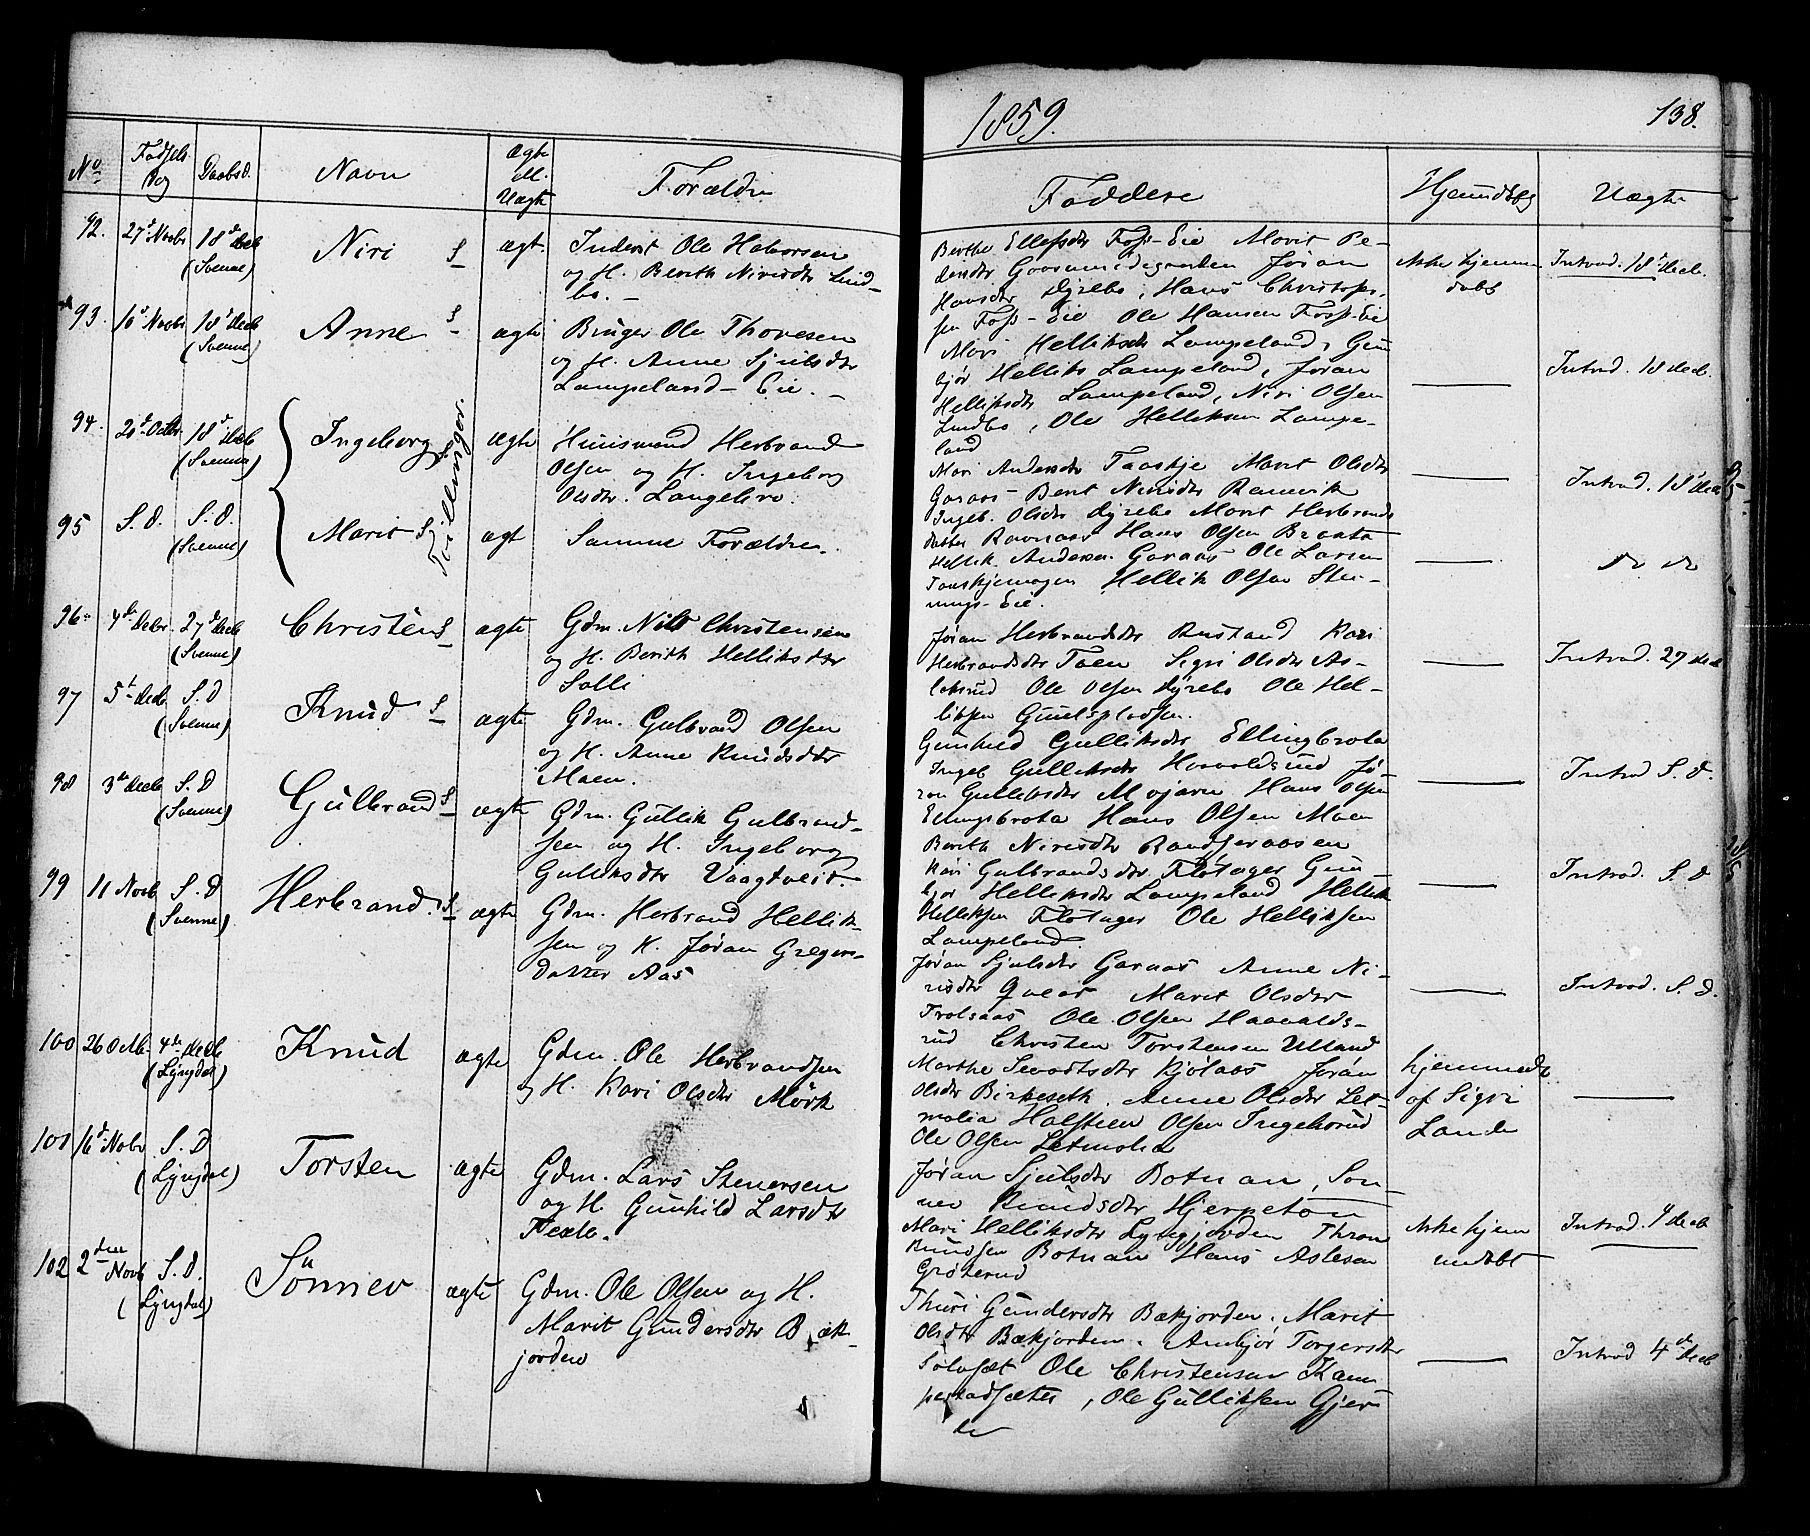 1859.
138.
No
Fødsels Dag
Daabsd.
Navn
Ægte ell. Uægte
Forældre
Faddere
Hjemdøbt
Uægte
92. 27d Novbr 18d Decb (Svenne) Niri S ægt. Inderst Ole Haborsen
og H. Berith Nirisdtr Lind-
bo. -
Berthe Ellefsdtr Foss-Eie Marit Pe-
dersdtr Joran
Hansdtr Dyrebo, Hans Christophs.
sen Foss-Eie Ole Hansen Foss-Eie
Ikke hjemme
døbt
Introd. 18d Decb.
93. 10d Novbr 18d Decb (Svenne) Anne S ægte Bruger Ole Thovesen
og H. Anne Sjulsdtr
Lampeland-Eie. -
Mari Helliksdtr Lampeland, Gun
bjør Helliks Lampeland, Joran
Helliksdtr Lampeland, Niri Olsen
Lindbo, Ole Helliksen Lampe-
land
Introd. 18 Decb.
94. 18d Decb (Svenne) Ingeborg S ægte Huusmand Herbrand
Olsen og H. Ingeborg
Olsdtr. Langebro.
Tvillinger.
Mari Andersdtr Taaskje Marit Olsdtr
Garaas - Berit Nirisdtr Ramvik
Ingeb. Olsdtr Dyrebo Marit Herbrands
datter Ravnaas Hans Olsen Braata
Hellik Andersen Garaas Ole Larsen
Hellik Olsen Sten-
ungs-Eie.
Introd. 18d Decb
95 S. D. S. D. (Svenne) Marit S ægt Samme Forældre.
Do Do
96. 4de Debr. 27d Decb (Svenne) Christen S ægte Gdm. Nils Christensen
og H. Berith Helliksdtr
Solli
Joran Herbrandsdtr Rustand Kari
Herbrandsdtr Toen Sigri Olsdtr As-
laksrud Ole Olsen Dyrebo Ole Hel-
liksen
Introd. 27 Decb
97 5t Decb S. D (Svenne) Knud S ægte Gdm. Gulbrand Olsen
og H. Anne Knudsdtr
Moen.
Gunhild Gulliksdtr Ellingbrota
Ingeb Gulliksdtr Havaldsrud Jø-
ran Gulliksdtr Mojaren Hans Olsen
Ellingsbrota Hans Olsen Moen
Introd S. D.
98 3de Decb S. D (Svenne) Gulbrand S ægte Gdm. Gullik Gulbrand-
sen og H. Ingeborg
Guliksdtr Vaagtveit.
Berith Nirisdtr
Kari Gulbrandsdtr Flotager Gun-
bjør Helliksdtr Lampeland Hellik
Helliksen Flotager Ole Helliksen
Lampeland.
Introd. S. D
99 11 Novb S. D (Svenne) Herbrand. S ægte Gdm. Herbrand Hellik-
sen og H. Jøran Gregers-
datter Aas
Jøran Sjulsdtr Garaas Anne Ni-
risdtr Marit Olsdtr
Trolsaas Ole Olsen Haavalds-
rud Christen Torstensen Ulland
Introd. S. D.
100 26 Octb. 4de Decb (Lyngdal) Knud ægte Gdm. Ole Herbrandsen
og H. Kari Olsdtr Mörk
Marthe Kjølaas Joran
Olsdtr Birkeseth. Anne Olsdtr Let-
molia Halsteen Olsen Ingehorud
Ole Olsen Letmolia
hjemmedøbt
af Sigri
Lande
101 16d Nobr S. D (Lyngdal) Torsten ægte Gdm. Lars Stenersen
og H. Gunhild Larsdtr
Jøran Sjulsdtr Botnan, Søn-
nev Knudsdtr Hjerpeton
Mari Helliksdtr Thron
Knudsen Botnan Hans Aslesen
Grøterud
Ikke hjem
medøbt
Introd. 4 Decb
102 2den Novb S. D. (Lyngdal) Sönnev ægte Gdm. Ole Olsen og H.
Marit Gundersdtr Bæk-
jorden
Thuri Gundersdtr Bækjorden, Marit
Olsdtr Bækjorden. Anbjør Torgersdtr
Solosæt Ole Christensen Kam
pestadsæter, Ole Gulliksen Gjer-
de
Introd 4d Decb